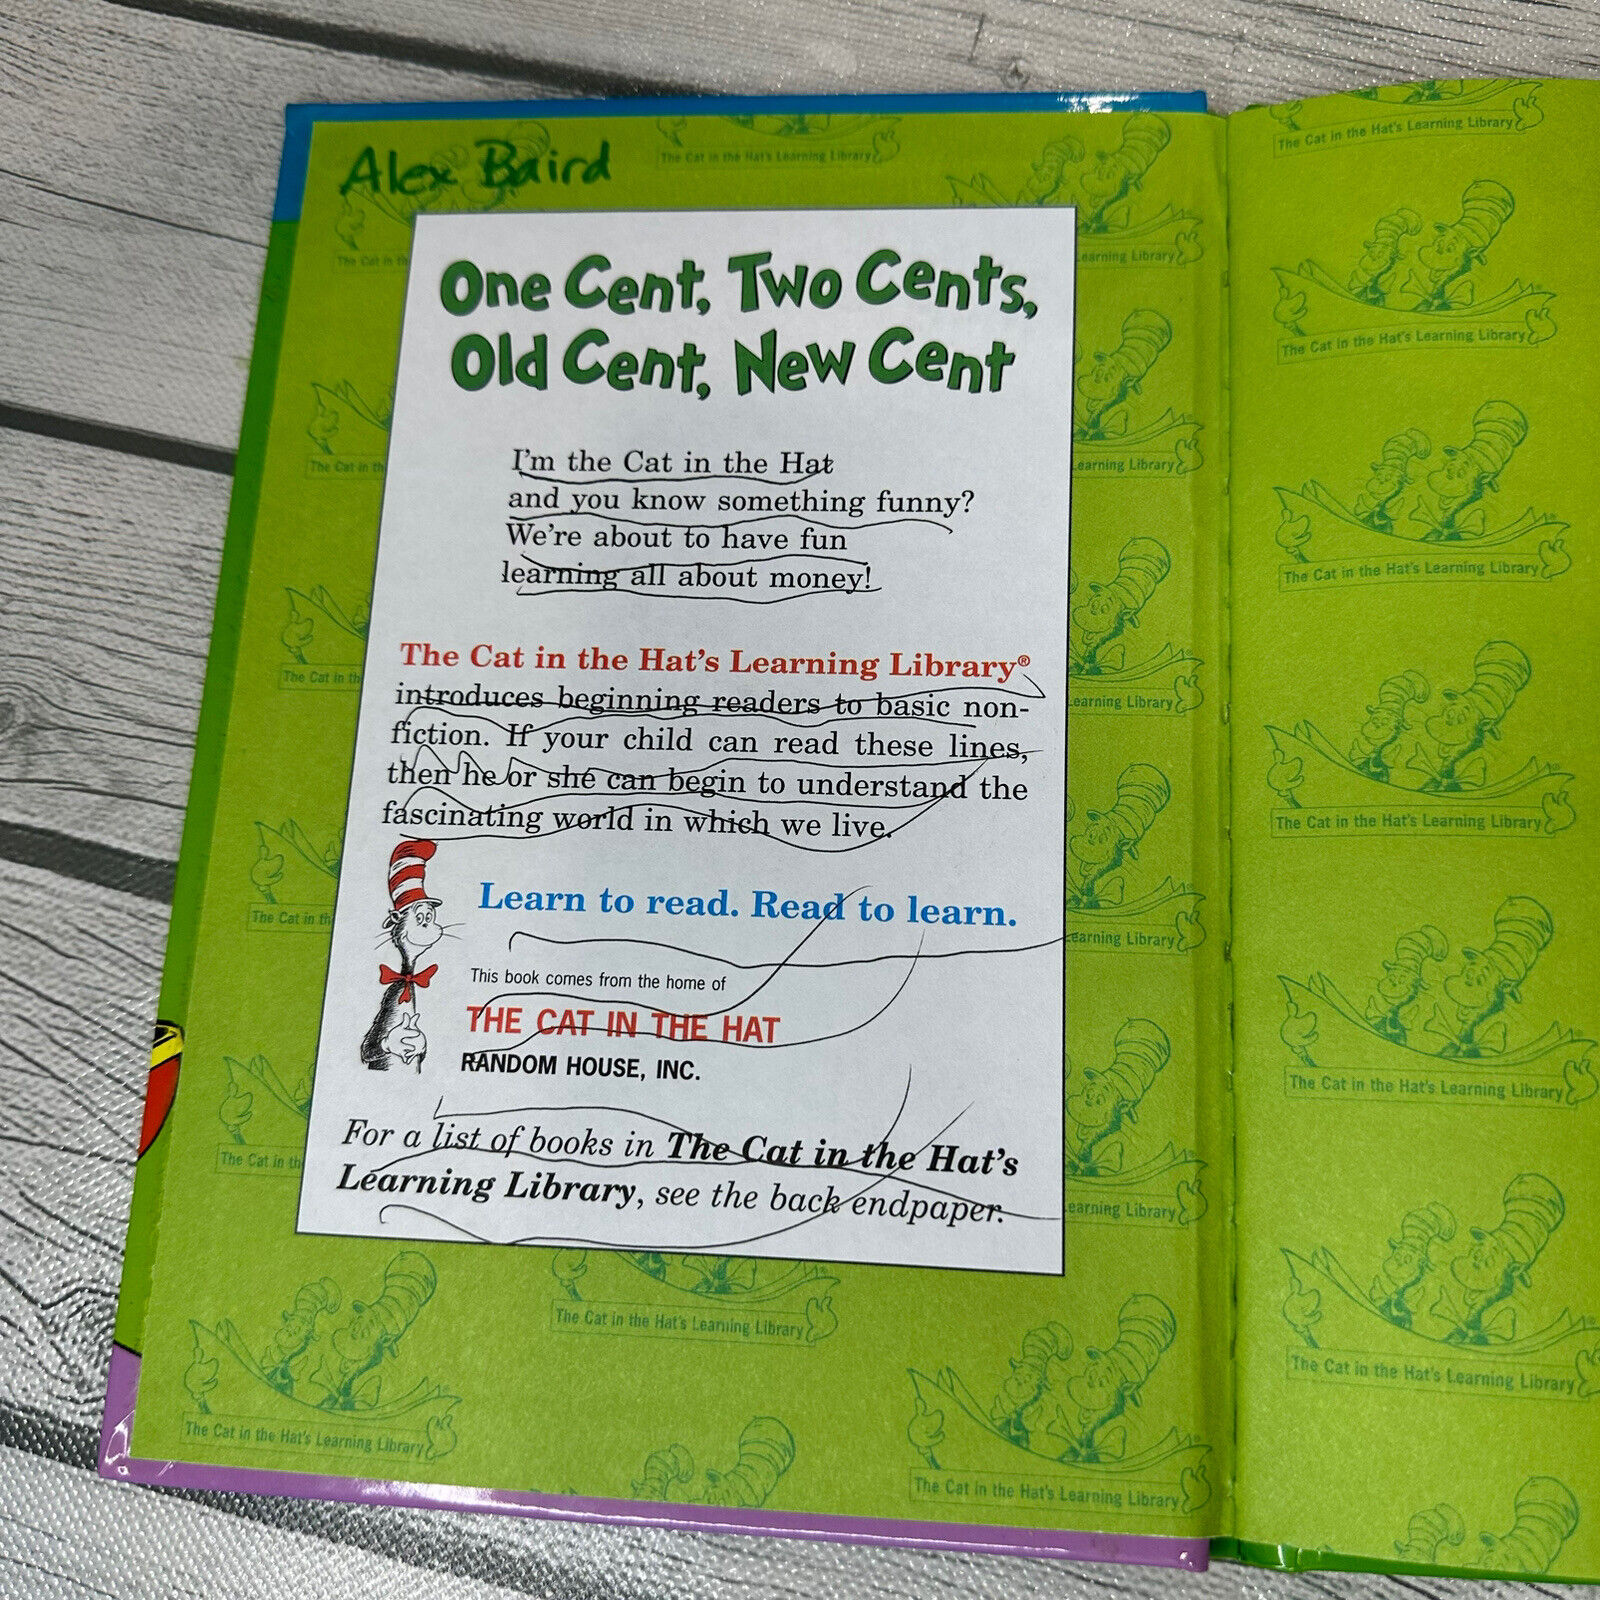 Alex Baird
The Cat in the Hat's Learning Library
The Cat in the Hat's Learning Library
One Cent, Two Cents,
Old Cent, New Cent
I'm the Cat in the Hat
and you know something funny?
We're about to have fun
learning all about money!
The Cat in the Hat's Learning Library®
introduces beginning readers to basic non-
fiction. If your child can read these lines,
then he or she can begin to understand the
fascinating world in which we live.
Learn to read. Read to learn.
This book comes from the home of
THE CAT IN THE HAT
RANDOM HOUSE, INC.
For a list of books in The Cat in the Hat's
Learning Library, see the back endpaper.
The Cat in th
Learning Library
The Cat in th
Learning Library
The Cat in th
Learning Library
The Cat in th
Learning Library
The Cat in th
Learning Library
The Cat in the Hat's Learning Library
The Cat in the Hat's Learning Library
The Cat in the Hat's Learning Library
The Cat in the Hat's Learning Library
The Cat in the Hat's Learning Library
The Cat in the Hat's Learning Library
The Cat in the Hat's Learning Library
The Cat in the Hat's Learning Library